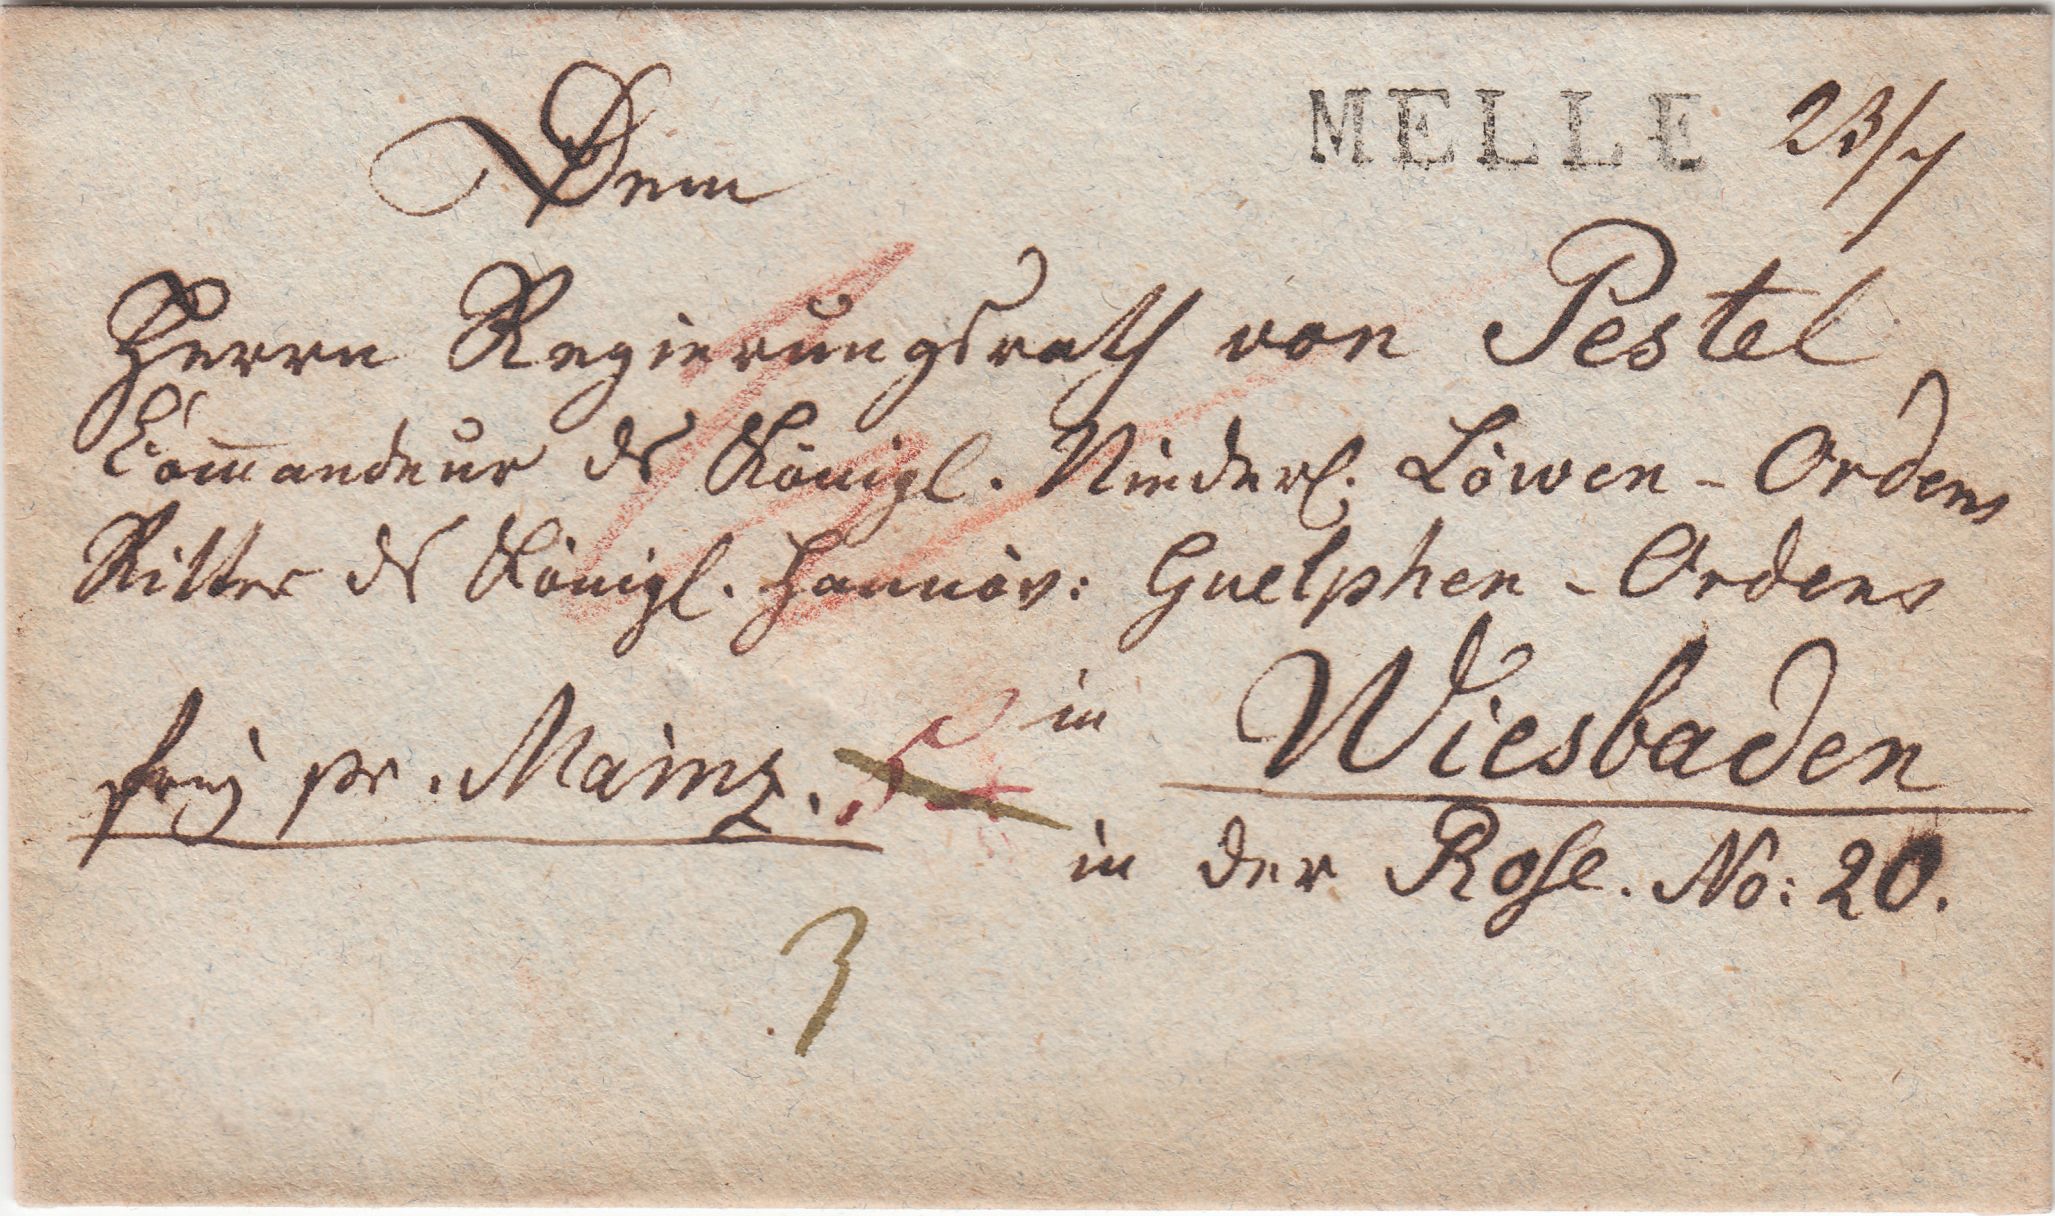 MELLE 23/7
Dem
Herrn Regierungsrath von Pestel
Com̄andeur des Königl. Niederl. Löwen - Ordens
Ritter des Königl. Hannöv: Guelphen - Ordens
in Wiesbaden
frei pr. Mainz.
in der Rose. No: 20.
3